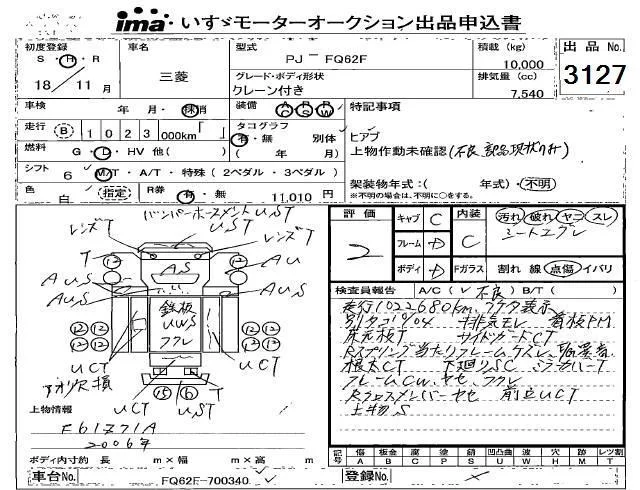 ima・いすゞモーターオークション出品申込書
初度登録 車名 型式 積載 (kg) 出品No.
S・H・R 三菱 PJ－FQ62F 10,000 3127
18／11月 グレード・ボディ形状 排気量 (cc)
クレーン付き 7,540
車検 年・月・抹消 装備 AC PS PW 特記事項
走行 B 1023 000km タコグラフ 有・無 別体 ヒアブ
燃料 G・L・HV 他( ) ( 年 月) 上物作動未確認(不良部品現状ﾅｼ)
シフト 6 M/T・A/T・特殊 (2ペダル・3ペダル)
色 白 指定 R券 有・無 11,010円 架装物年式:( 年式)・不明
※不明の場合は、不明に○をする。
バンパーホースメントUST
UST
レンズT レンズT
T AU
AUS AS AU
AUS AUS
鉄板
UWS
フクレ
UCT UCT
アオリ欠損 UCT UST
評価 2 キャブ C 内装 C 汚れ 破れ ヤニ スレ
フレーム D シートエグレ
ボディ D Fガラス 割れ 線 点傷 イバリ
検査員報告 A/C(レ 不良) B/T( )
走行1022680km
別タコ 04 排気モレ 看板DM
床元板T サイドガードCT
Rスプリング当たりフレームケズレ
根太CT 下廻りSC ミラカバーT
フレームCW、ヤセ、フクレ
Rクロスメンバーヤセ 前立UCT
上物S
上物情報
F61771A
2006年
ボディ内寸約 長 m×幅 m×高 m
記号 傷 板金 腐 塗 錆 凹凸曲 波 穴 跡 欠 レンズ割
A B C P S U W H M T
車台No. FQ62F-700340 登録No.